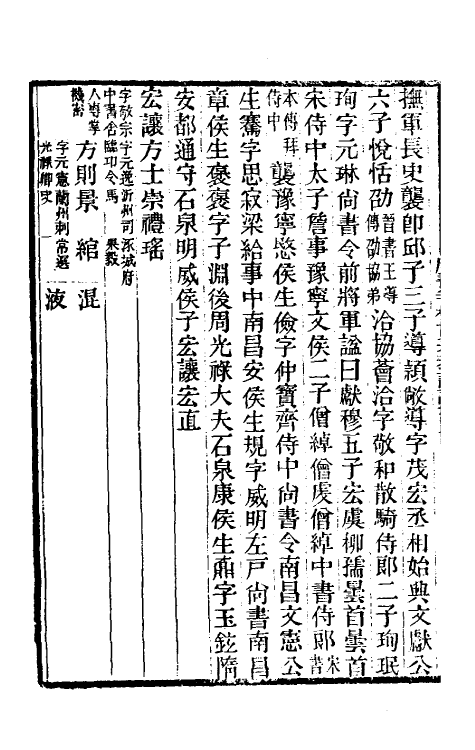 撫軍長史襲卽邱子三子導頴敞導字茂宏丞相始典文獻公
六子悅恬劭晉書王導傳劭協弟洽協薈洽字敬和散騎侍郎二子珣珉
珣字元琳尙書令前將軍諡曰獻穆五子宏虞柳孺曇首曇首
宋侍中太子詹事豫寧文侯二子僧綽僧虔僧綽中書侍郎宋書
本傳拜侍中襲豫寧愍侯生儉字仲寶齊侍中尙書令南昌文憲公
生騫字思寂梁給事中南昌安侯生規字威明左戸尙書南昌
章侯生褒褒字子淵後周光祿大夫石泉康侯生鼒字玉鉉隋
安都通守石泉明威侯子宏讓宏直
宏讓方士崇禮瑤
字敬宗中書舍人專掌機密字元逸臨卬令沂州司馬涿城府果毅
方則景綰混
字元憲光祿卿蘭州刺史常選
液